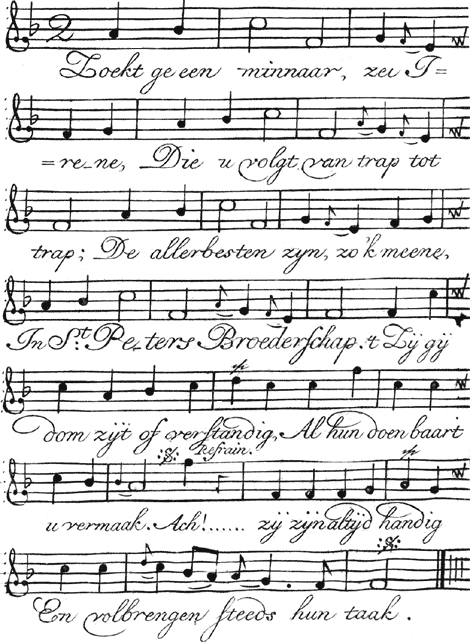 2
Zoekt ge een minnaar, zei I=
=re-ne, Die u volgt van trap tot
trap; De allerbesten zyn, zo'k meene,
In St. Pe-ters Broederschap. 't Zij gij
dom zijt of verstandig, Al hun doen baart
Refrain.
u vermaak. Ach!...... zij zijn altijd handig
En volbrengen steeds hun taak.